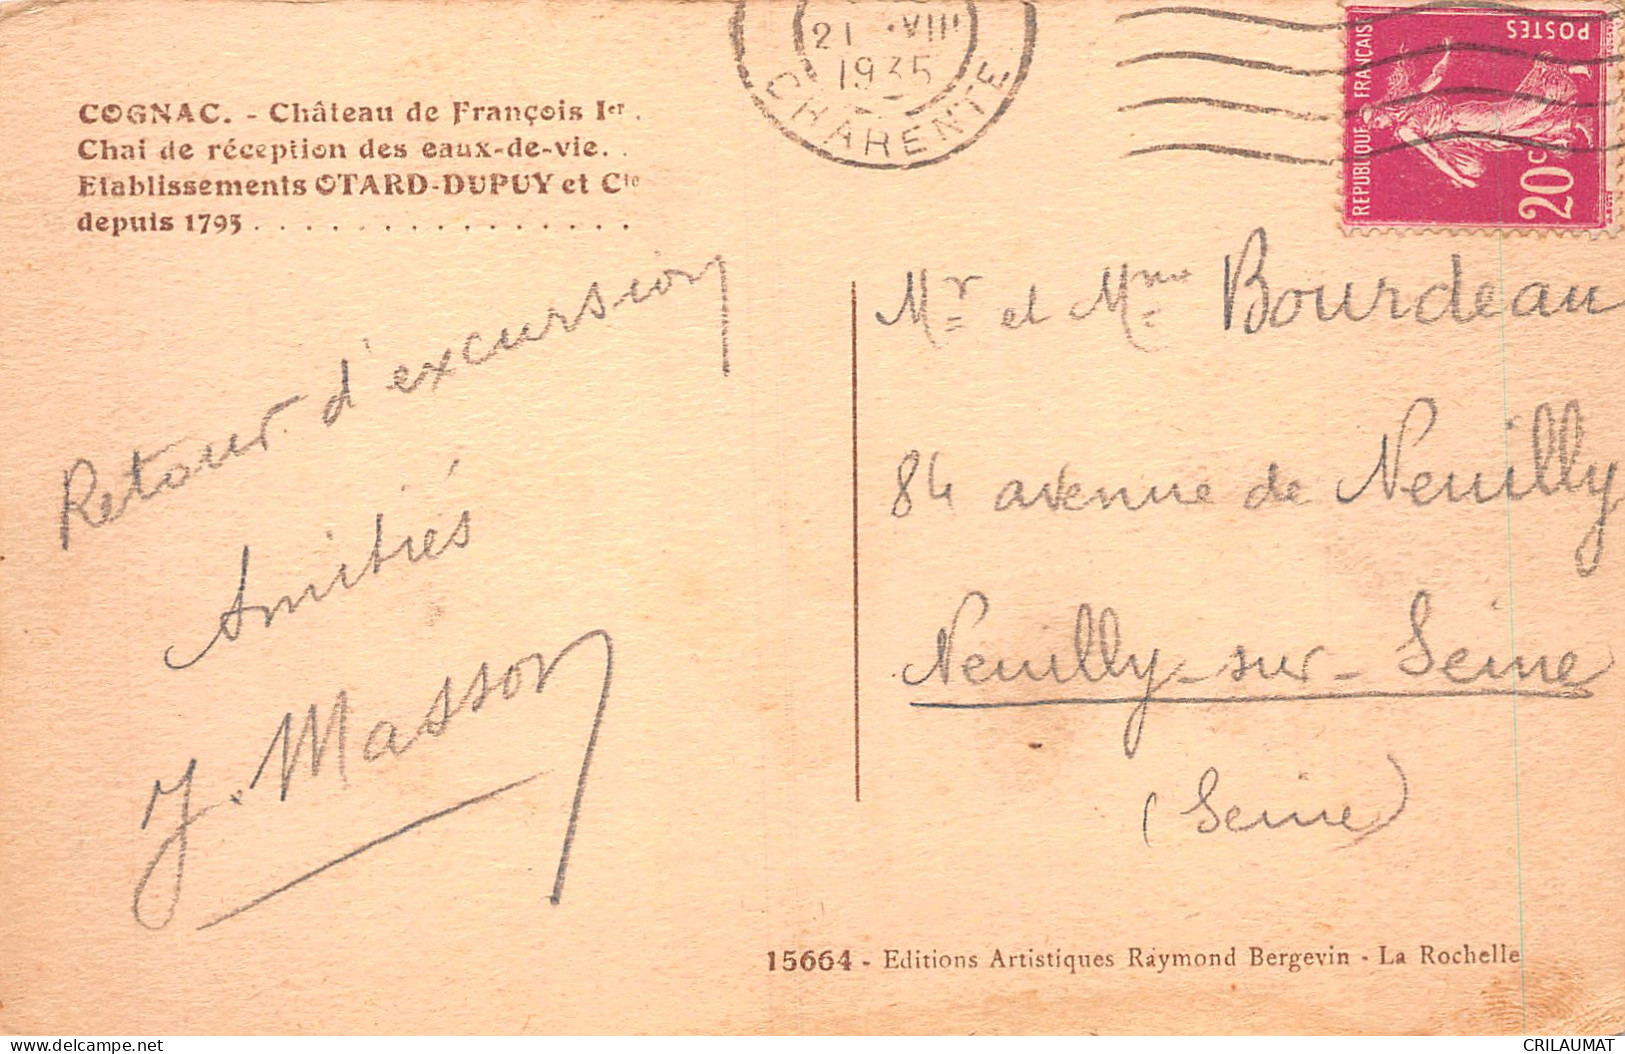 COGNAC. - Château de François Ier.
Chai de réception des eaux-de-vie. .
Etablissements OTARD-DUPUY et Cie
depuis 1795 . . . . . . . . . . . . . . .
21 VIII
1935
CHARENTE
POSTES
REPUBLIQUE FRANÇAISE
20c
Retour d'excursion
Amitiés
J. Masson
Mr et Mme Bourdeau
84 avenue de Neuilly
Neuilly-sur-Seine
(Seine)
15664 - Editions Artistiques Raymond Bergevin - La Rochelle
delcampe.net
CRILAUMAT